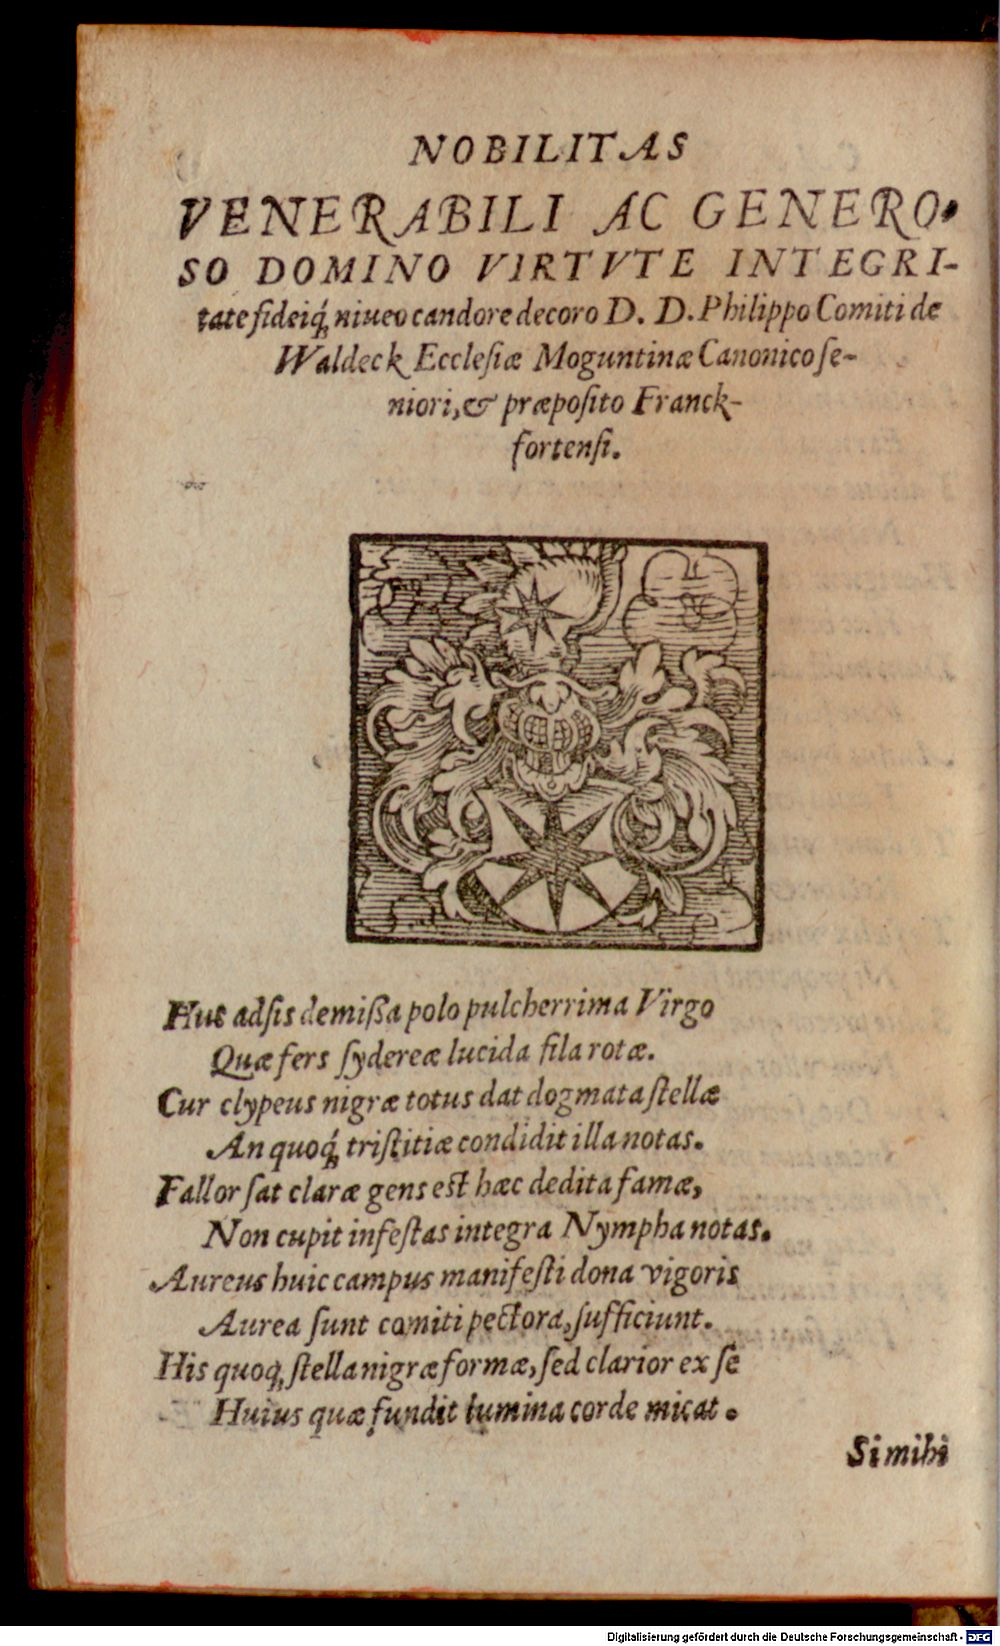 NOBILITAS
VENERABILI AC GENERO-
SO DOMINO VIRTVTE INTEGRI-
tate fideiq́; niueo candore decoro D. D. Philippo Comiti de
Waldeck Ecclesiæ Moguntinæ Canonico se-
niori, & præposito Franck-
fortensi.
Huc adsis demißa polo pulcherrima Virgo
Quæ fers sydereæ lucida fila rotæ.
Cur clypeus nigræ totus dat dogmata stellæ
An quoq́; tristitiæ condidit illa notas.
Fallor sat claræ gens est hæc dedita famæ,
Non cupit infestas integra Nympha notas.
Aureus huic campus manifesti dona vigoris
Aurea sunt comiti pectora, sufficiunt.
His quoq; stella nigræ formæ, sed clarior ex se
Huius quæ fundit lumina corde micat.
Si mihi
Digitalisierung gefördert durch die Deutsche Forschungsgemeinschaft - DFG